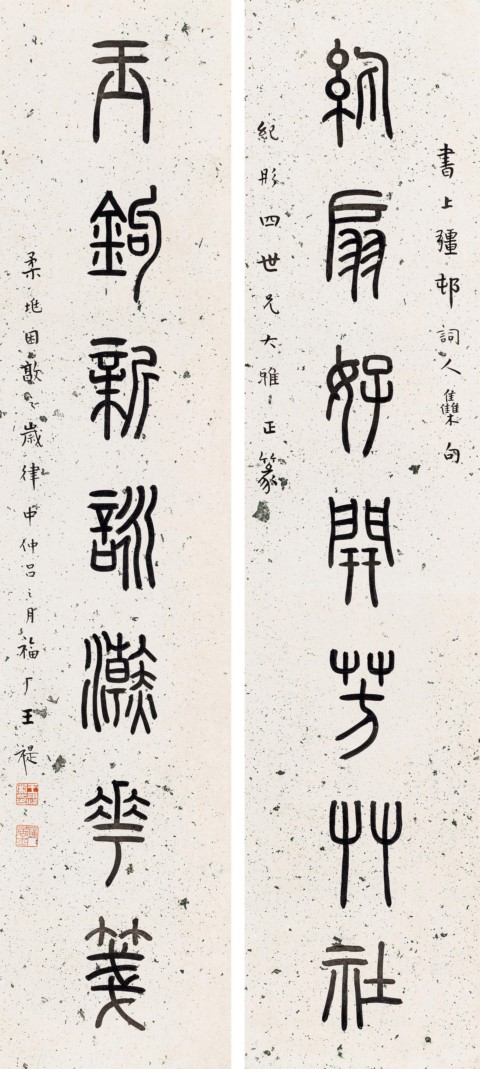 書上彊邨詞人雧句
紈扇好開芳艸社
紀彤四世兄大雅正篆
玉鉤新詠澣華箋
柔兆困敦歲律中仲呂之月福厂王禔